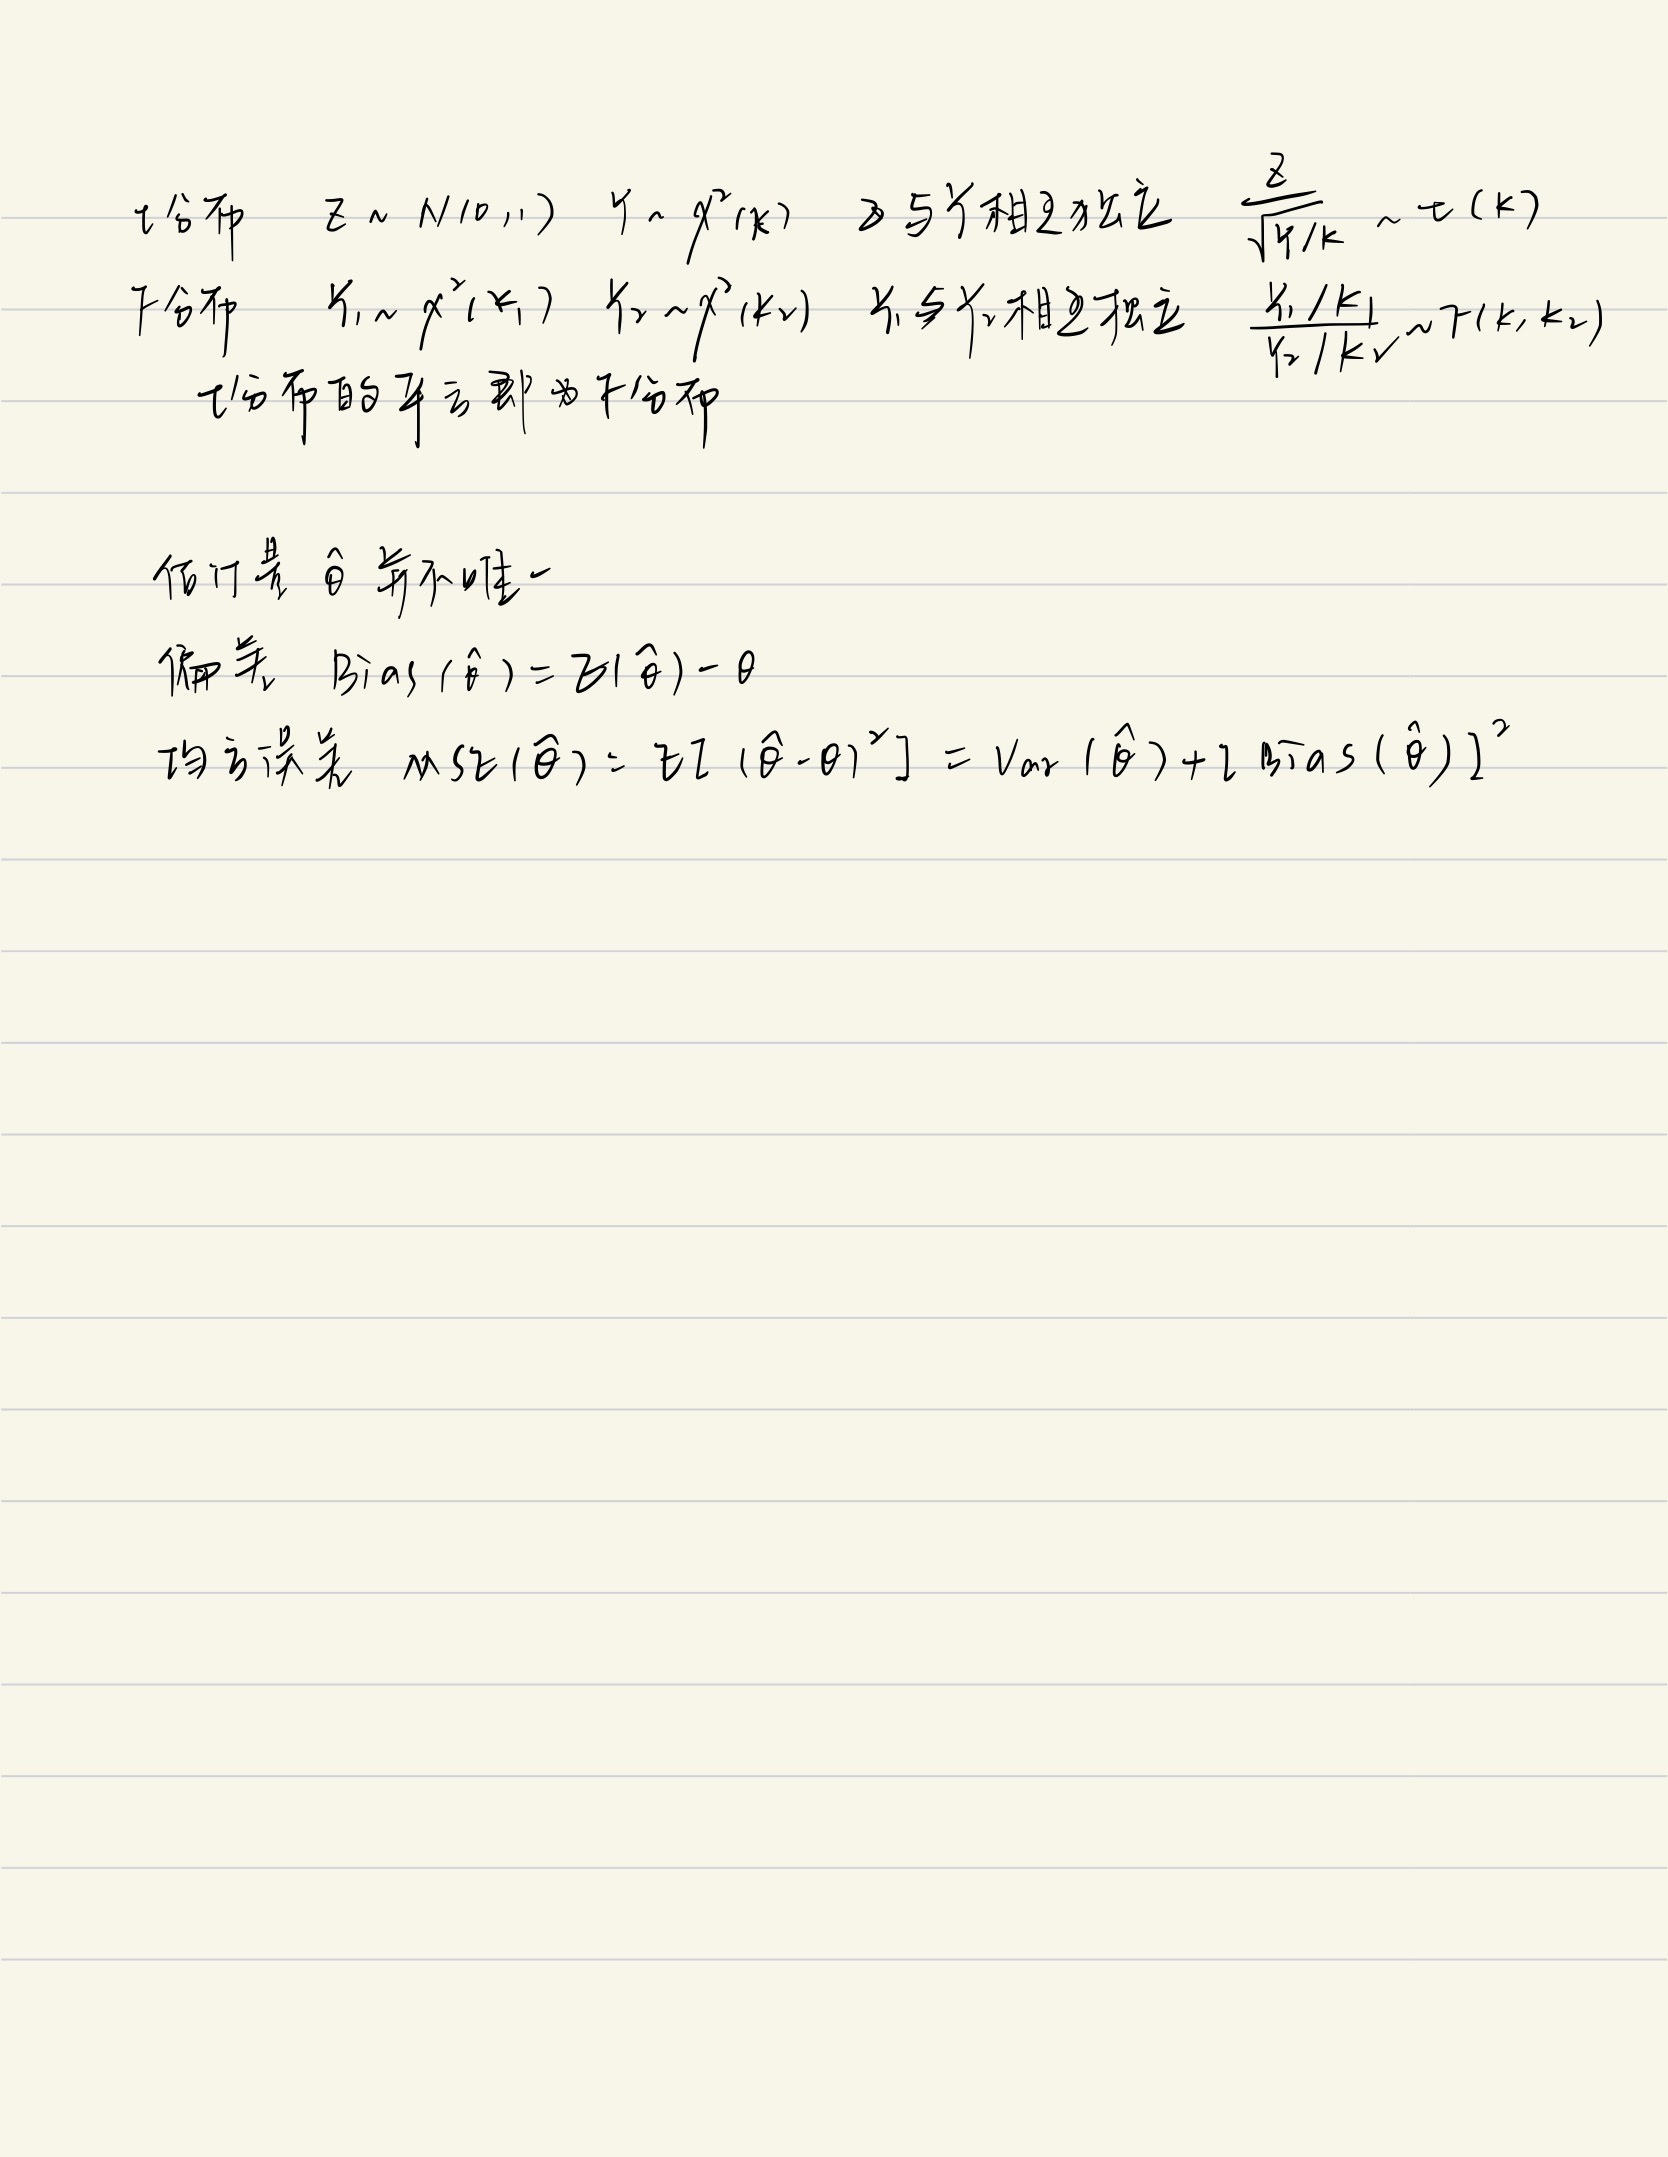 t分布 Z ~ N(0,1) Y ~ χ²(k) Z与Y相互独立 Z/√(Y/k) ~ t(k)
F分布 Y₁ ~ χ²(k₁) Y₂ ~ χ²(k₂) Y₁与Y₂相互独立 (Y₁/k₁)/(Y₂/k₂) ~ F(k, k₂)
t分布的平方即为F分布
估计量 θ̂ 并不唯一
偏差 Bias(θ̂) = E(θ̂) - θ
均方误差 MSE(θ̂) = E[(θ̂-θ)²] = Var(θ̂) + [Bias(θ̂)]²